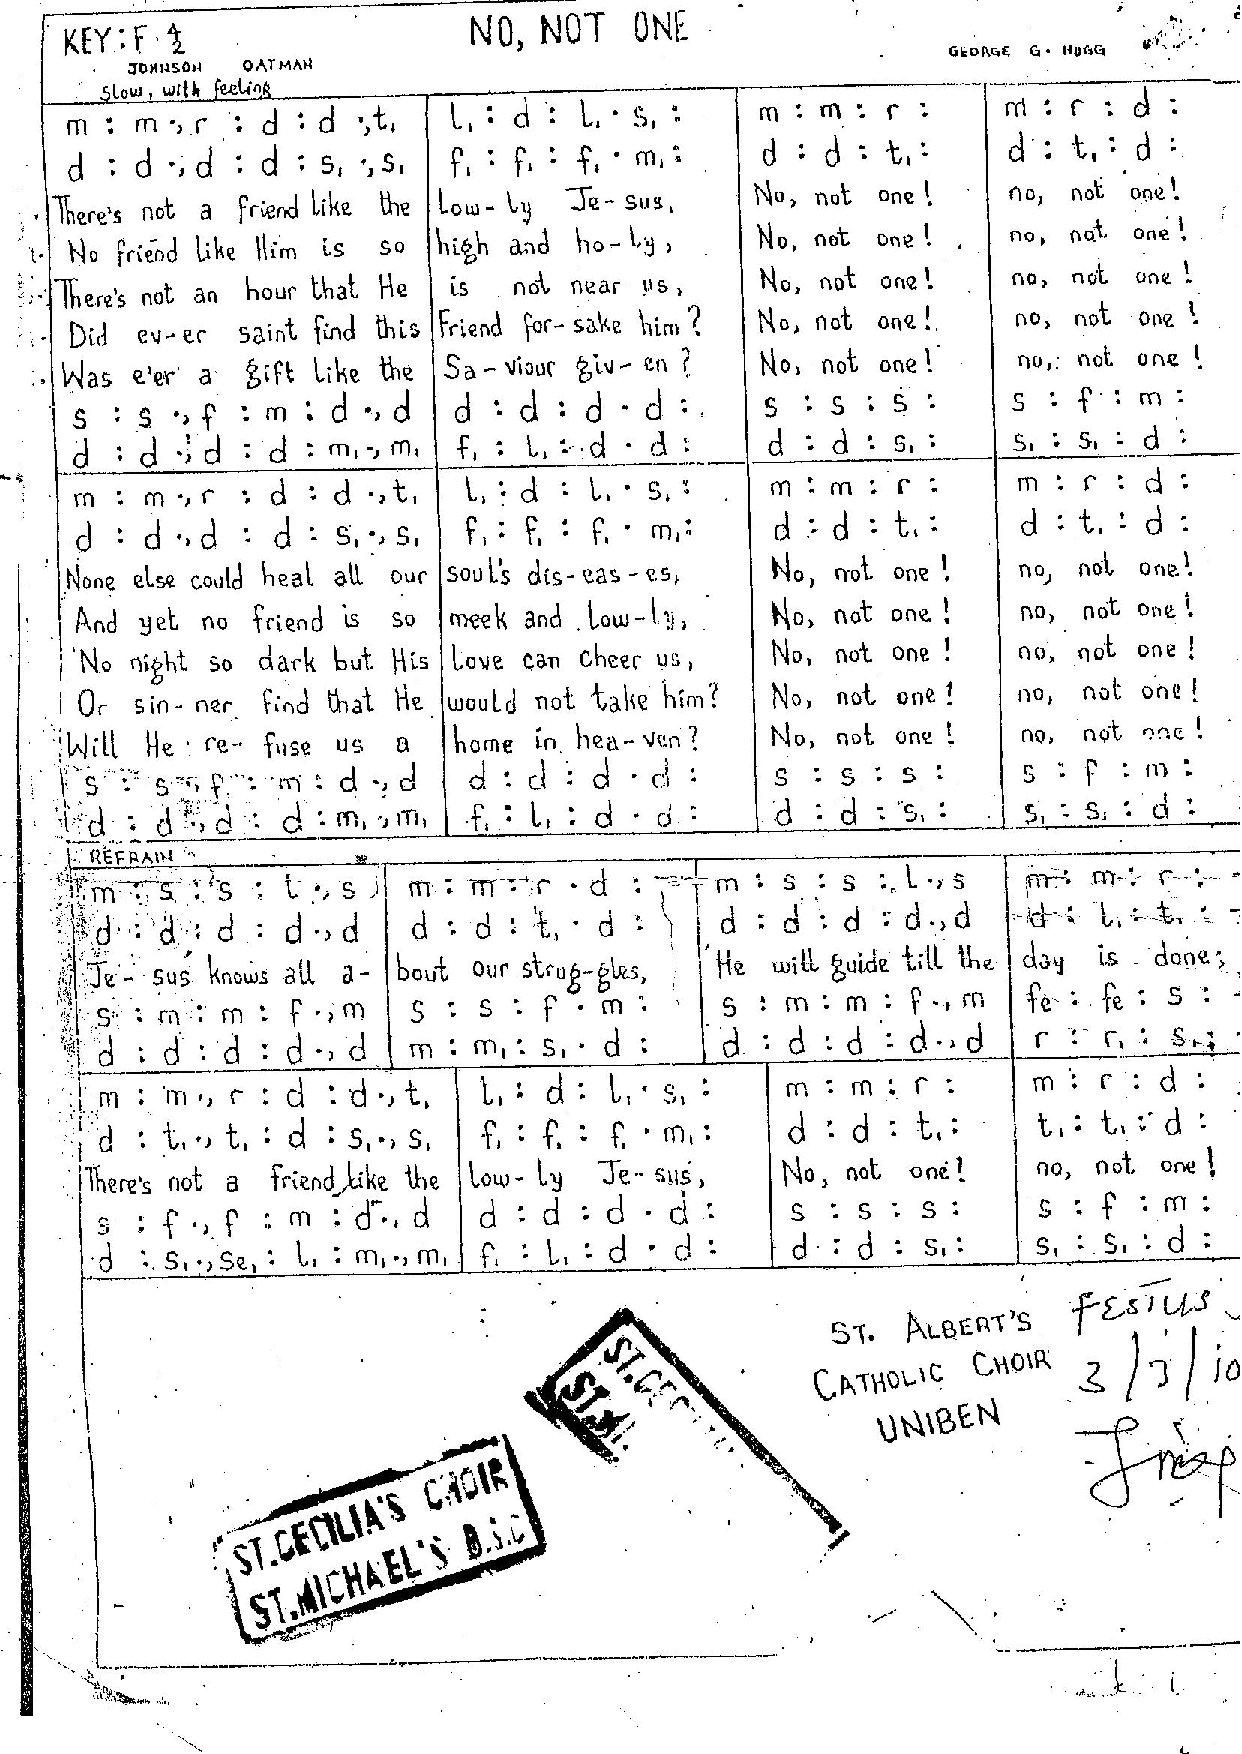 NO, NOT ONE
KEY: F 4/2
JOHNSON OATMAN
GEORGE G. HUGG
Slow, with feeling
m : m ., r : d : d ., t, | l, : d : l, . s, : | m : m : r : | m : r : d :
d : d ., d : d : s, ., s, | f, : f, : f, . m, : | d : d : t, : | d : t, : d :
There's not a friend like the | low-ly Je-sus, | No, not one! | no, not one!
No friend like Him is so | high and ho-ly, | No, not one! | no, not one!
There's not an hour that He | is not near us, | No, not one! | no, not one!
Did ev-er saint find this | Friend for-sake him? | No, not one! | no, not one!
Was e'er a gift like the | Sa-viour giv-en? | No, not one! | no, not one!
s : s ., f : m : d ., d | d : d : d . d : | s : s : s : | s : f : m :
d : d ., d : d : m, ., m, | f, : l, : d . d : | d : d : s, : | s, : s, : d :
m : m ., r : d : d ., t, | l, : d : l, . s, : | m : m : r : | m : r : d :
d : d ., d : d : s, ., s, | f, : f, : f, . m, : | d : d : t, : | d : t, : d :
None else could heal all our | soul's dis-eas-es, | No, not one! | no, not one!
And yet no friend is so | meek and low-ly, | No, not one! | no, not one!
No night so dark but His | love can cheer us, | No, not one! | no, not one!
Or sin-ner find that He | would not take him? | No, not one! | no, not one!
Will He re-fuse us a | home in hea-ven? | No, not one! | no, not one!
s : s ., f : m : d ., d | d : d : d . d : | s : s : s : | s : f : m :
d : d ., d : d : m, ., m, | f, : l, : d . d : | d : d : s, : | s, : s, : d :
REFRAIN
m : s : s : l ., s | m : m : r . d : | m : s : s : l ., s | m : m : r :
d : d : d : d ., d | d : d : t, . d : | d : d : d : d ., d | d : l, : t, :
Je-sus knows all a- | bout our strug-gles, | He will guide till the | day is done;
s : m : m : f ., m | s : s : f . m : | s : m : m : f ., m | fe : fe : s :
d : d : d : d ., d | m : m, : s, . d : | d : d : d : d ., d | r : r, : s, :
m : m ., r : d : d ., t, | l, : d : l, . s, : | m : m : r : | m : r : d :
d : t, ., t, : d : s, ., s, | f, : f, : f, . m, : | d : d : t, : | t, : t, : d :
There's not a friend like the | low-ly Je-sus, | No, not one! | no, not one!
s : f ., f : m : d ., d | d : d : d . d : | s : s : s : | s : f : m :
d : s, ., se, : l, : m, ., m, | f, : l, : d . d : | d : d : s, : | s, : s, : d :
ST. ALBERT'S
CATHOLIC CHOIR
UNIBEN
FESTUS
ST. CECILIA'S CHOIR
ST. MICHAEL'S B.S.C